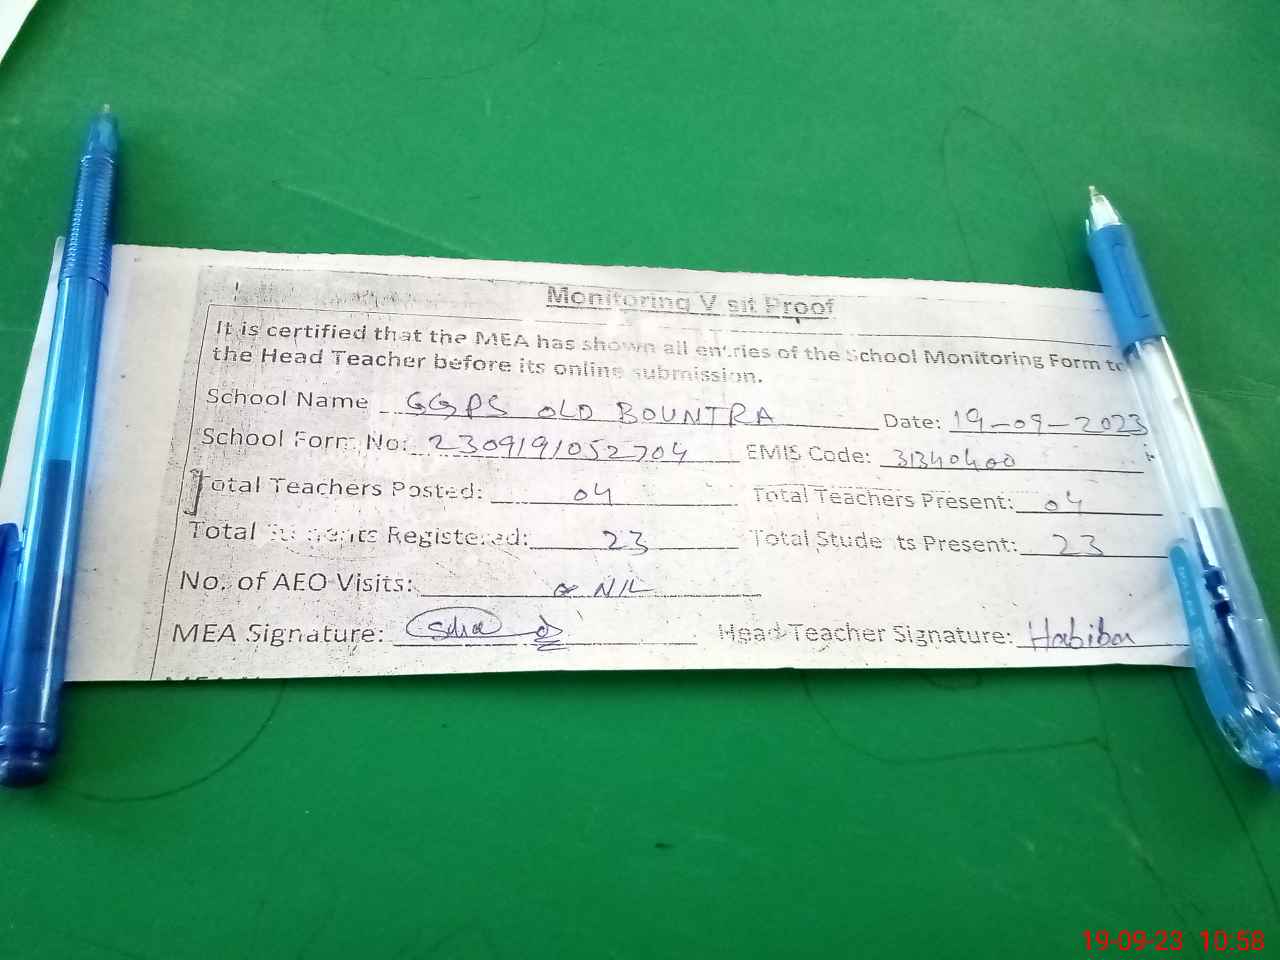 Monitoring Visit Proof
It is certified that the MEA has shown all entries of the School Monitoring Form to
the Head Teacher before its online submission.
School Name GGPS OLD BOUNTRA Date: 19-09-2023
School Form No: 2309191052704 EMIS Code: 31340400
Total Teachers Posted: 04 Total Teachers Present: 04
Total Students Registered: 23 Total Students Present: 23
No. of AEO Visits: NIL
MEA Signature: Head Teacher Signature: Habiba
19-09-23 10:58